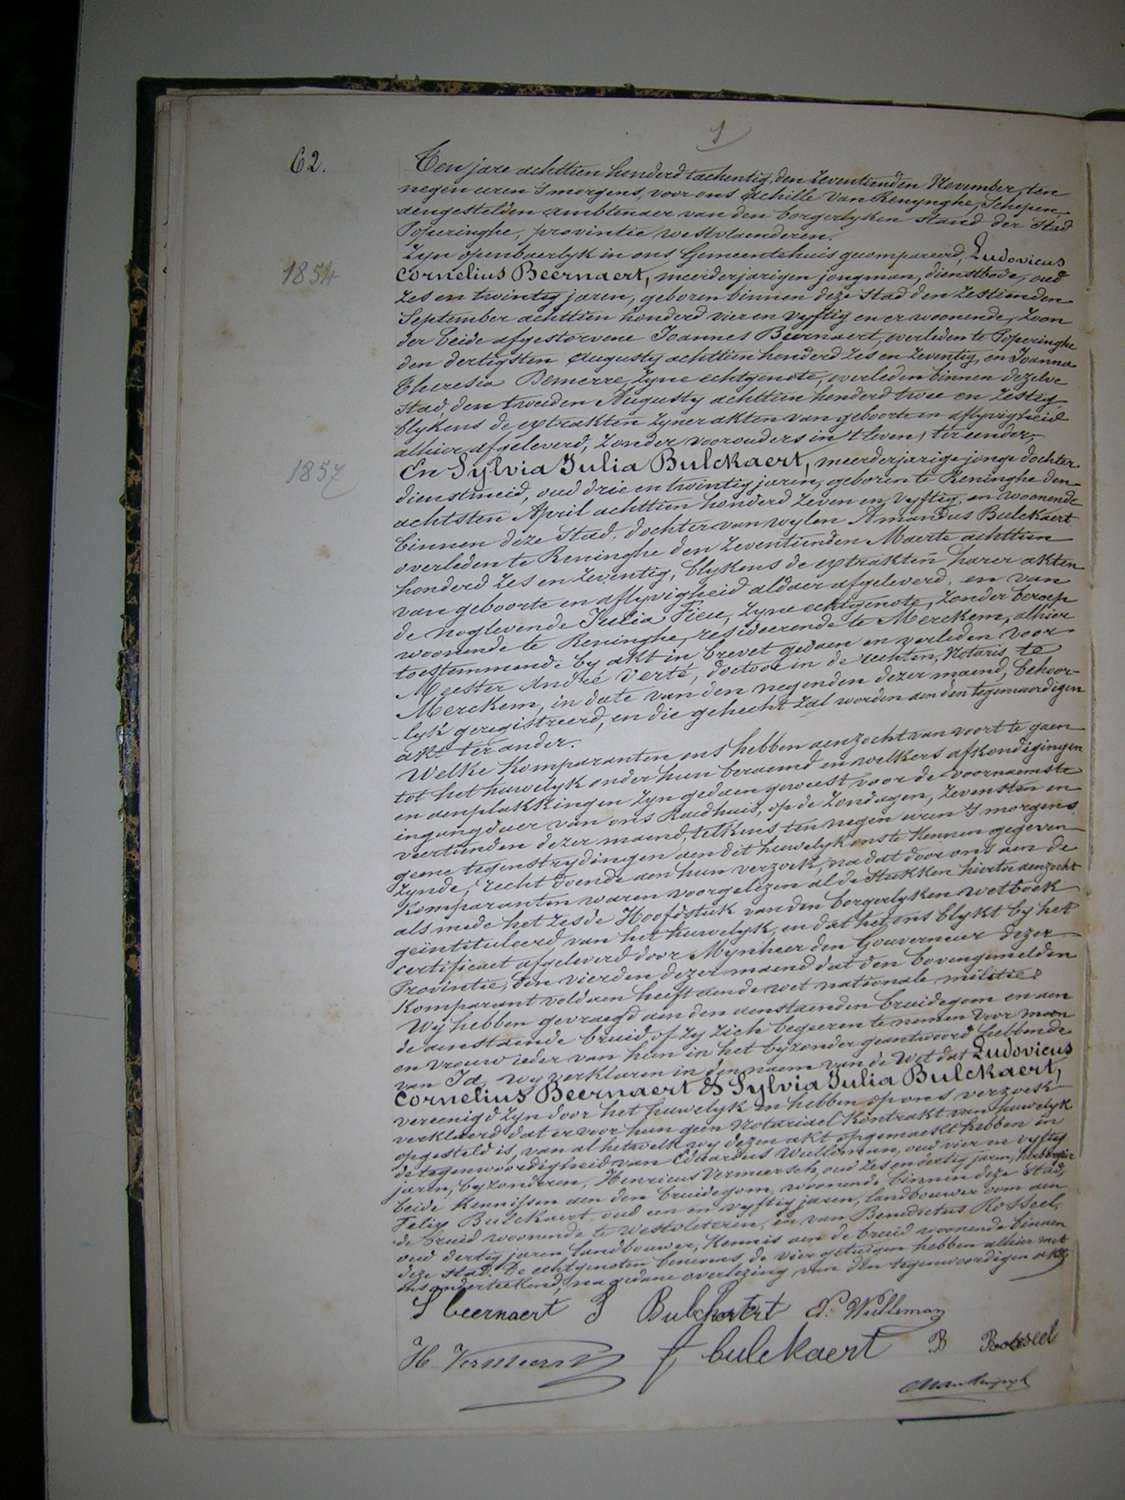 62.
Ten jare achttien honderd tachentig, den zeventienden November, ten
negen uren 's morgens, voor ons Achille Van Renynghe, Schepen,
aengestelden ambtenaer van den borgerlyken stand der Stad
Poperinghe, provintie Westvlaenderen.
Zyn openbaerlyk in ons Gemeentehuis gekompareerd, Ludovicus
1854
Cornelius Beernaert, meerderjarigen jongman, dienstbode, oud
zes en twintig jaren, geboren binnen deze Stad den zestienden
September achttien honderd vier en vyftig en er woonende, zoon
der beide afgestorvene Joannes Beernaert, overleden te Poperinghe
den dertigsten Augusty achttien honderd zes en zeventig, en Joanna
Theresia Bemerre, zyne echtgenote, overleden binnen dezelve
Stad, den tweeden Augusty achttien honderd twee en zestig,
blykens de extrakten zyner akten van geboorte en aflyvigheid
alhier afgeleverd, zonder voorouders in 't leven, ter eender,
1857
En Sylvia Julia Bulckaert, meerderjarige jonge dochter
dienstmeid, oud drie en twintig jaren, geboren te Reninghe den
achtsten April achttien honderd zeven en vyftig, en woonende
binnen deze Stad, dochter van wylen Amandus Bulckaert
overleden te Reninghe den zeventienden Maerte achttien
honderd zes en zeventig, blykens de extrakten harer akten
van geboorte en aflyvigheid aldaer afgeleverd, en van
de noglevende Julia Fieu, zyne echtgenote, zonder beroep
woonende te Reninghe, resideerende te Merckem, alhier
toestemmende by akt in brevet gedaen en verleden voor
Meester André Verté, doctoor in de rechten, Notaris te
Merckem, in date van den negenden dezer maend, behoor-
lyk geregistreerd, en die gehecht zal worden aen den tegenwoordigen
akt ter ander.
Welke Komparanten ons hebben aenzocht van voort te gaen
tot het huwelyk onder hun beraemd en welkers afkondigingen
en aenplakkingen zyn gedaen geweest voor de voornaemste
ingangduer van ons Raedhuis, op de zondagen, zevensten en
veertienden dezer maend, telkens ten negen uren 's morgens
geene tegenstrydingen aen dit huwelyk ons te kennen gegeven
zynde, recht doende aen hun verzoek, nadat door ons aen de
Komparanten waren voorgelezen al de stukken hiertoe aenzocht
als mede het zesde Hoofdstuk van den borgerlyken wetboek
geïntituleerd van het huwelyk, en dat het ons blykt by het
certificaet afgeleverd door Mynheer den Gouverneur dezer
Provintie, den vierden dezer maend dat den bovengemelden
Komparant voldaen heeft aende wet nationale militie:
Wy hebben gevraegd aen den aenstaenden bruidegom en aen
de aenstaende bruid, of zy zich begeeren te nemen voor man
en vrouw ieder van hun in het byzonder geantwoord hebbende
van Ja, wy verklaren in den naem van de Wet dat Ludovicus
Cornelius Beernaert & Sylvia Julia Bulckaert,
vereenigd zyn door het huwelyk en hebben op ons verzoek
verklaerd dat er voor hun geen Notariael Kontrakt van huwelyk
opgesteld is, van al hetwelk wy dezen akt opgemaekt hebben in
de tegenwoordigheid van Eduardus Wulleman, oud vier en vyftig
jaren, byzonderen, Henricus Vermeersch, oud zes en dertig jaren,
beide Kennissen aen den bruidegom, woonende binnen deze Stad,
Felix Bulckaert, oud een en vyftig jaren, landbouwer oom aen
de bruid woonende te Westvleteren, en van Benedictus Rosseel,
oud dertig jaren, landbouwer, Kennis aen de bruid woonende binnen
deze Stad. De echtgenoten benevens de vier getuigen hebben alhier met
ons onderteekend, na gedane overlezing van den tegenwoordigen akt.
L beernaert S Bulckaert E. Wulleman
H Vermeersch f bulckaert B Rosseel